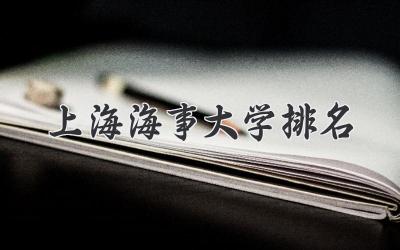 上海海事大学排名